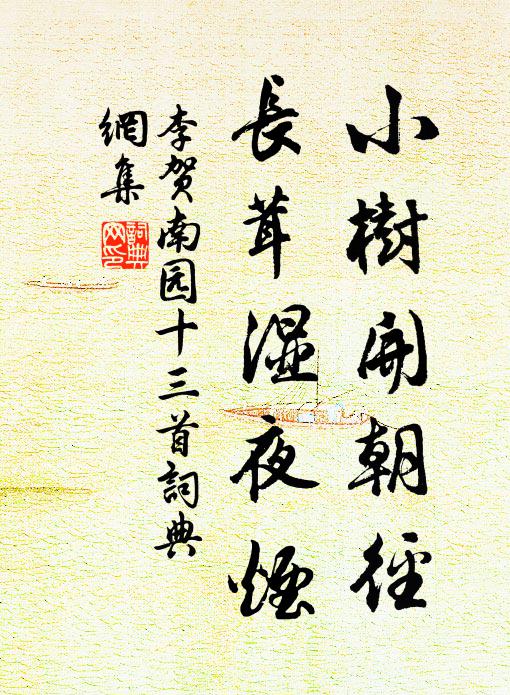 小樹開朝徑
長茸濕夜煙
李贺南园十三首詞典
網集
詞典
网印